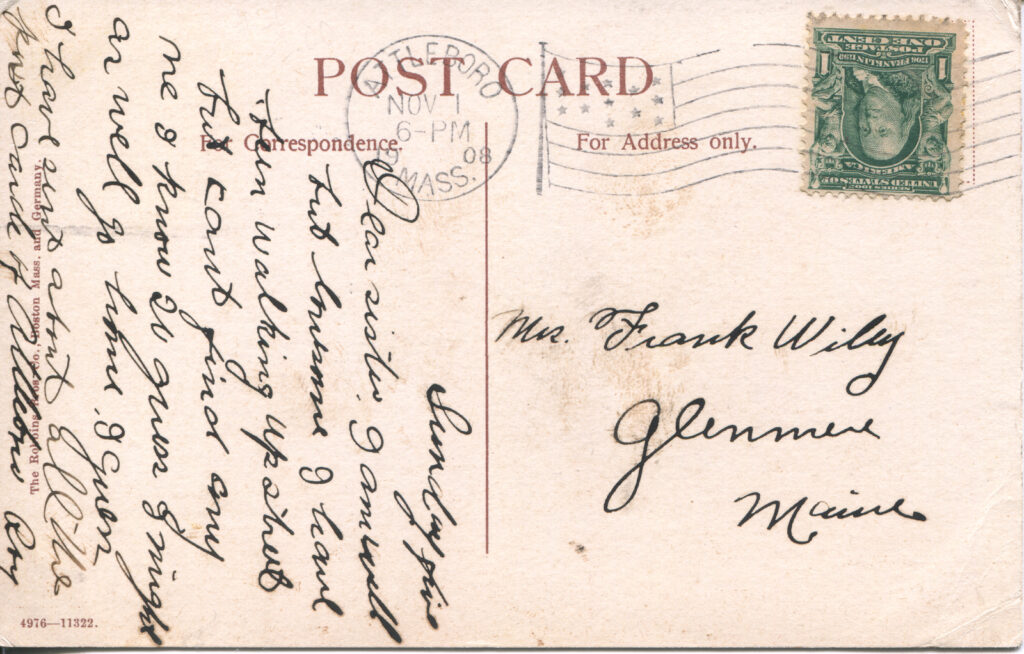 POST CARD
ATTLEBORO
NOV 1
6-PM
1908
MASS.
For Correspondence.
For Address only.
ONE CENT
POSTAGE
1706 FRANKLIN 1790
1 1
UNITED STATES OF
AMERICA
SERIES 1902
Sunday
Dear sister. I am well
but lonesome I have
been walking up street
but cant find any
one I know So guess I might
as well go home. I guess
I have sent about all the
post cards of Attleboro Roy
Mrs. Frank Wiley
Glenmere
Maine
The Robbins Bros. Co., Boston Mass. and Germany.
4976—11322.